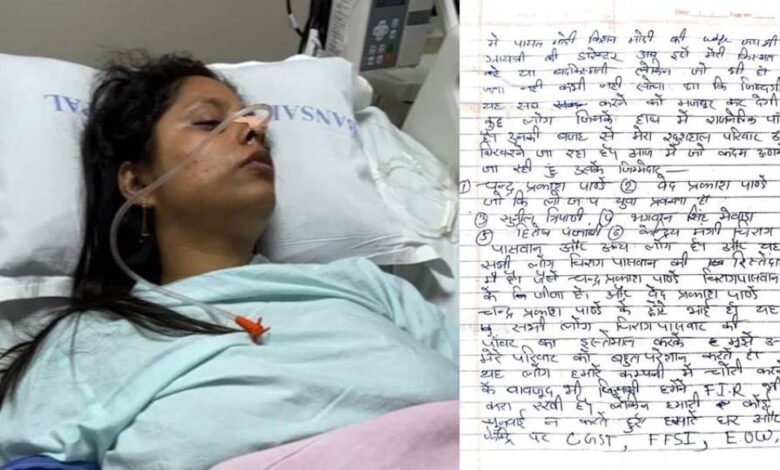 BANSAL
PAL
ANSAL
मे पायल मोदी किशन मोदी की wife जय श्री
गायत्री की डारेक्टर आप इसे मेरी किस्मत
कहे या बदकिस्मती लेकिन जो भी हो
कभी नहीं सोचा था कि जिन्दगी
यह सब करने को मजबूर कर देगी
कुछ लोग जिनके हाथ में राजनैतिक
है। इनकी वजह से मेरा खुशहाल परिवार
बिखरने जा रहा है। आज में जो कदम उठाने
जा रही हुं उसके जिम्मेदार
① चन्द्र प्रकाश पाण्डे ② वेद प्रकाश पाण्डे
जो कि लो ज प युवा प्रवक्ता है
③ सुनील त्रिपाठी ④ भगवान सिंह मेवाड़ा
⑤ हितेष पंजाबी ⑥ केन्द्रीय मंत्री चिराग
पासवान और अन्य लोग है। और यह
सभी लोग चिराग पासवान की रिस्तेदार
में है। जैसे चन्द्र प्रकाश पाण्डे चिराग पासवान
के जीजा है। और वेद प्रकाश पाण्डे
चन्द्र प्रकाश पाण्डे के छोटे भाई है। यह
सभी लोग चिराग पासवान की
पॉवर का इस्तेमाल करके मुझे
मेरे परिवार को बहुत परेशान करते है।
यह लोग हमारे कम्पनी में चोरी करने
के वावजूद भी जिसकी हमने F.I.R भी
करा रखी है। लेकिन हमारी कोई
सुनवाई न करते हुए हमारे घर और
फेक्ट्रि पर CGST, FFSI, E.O.W,